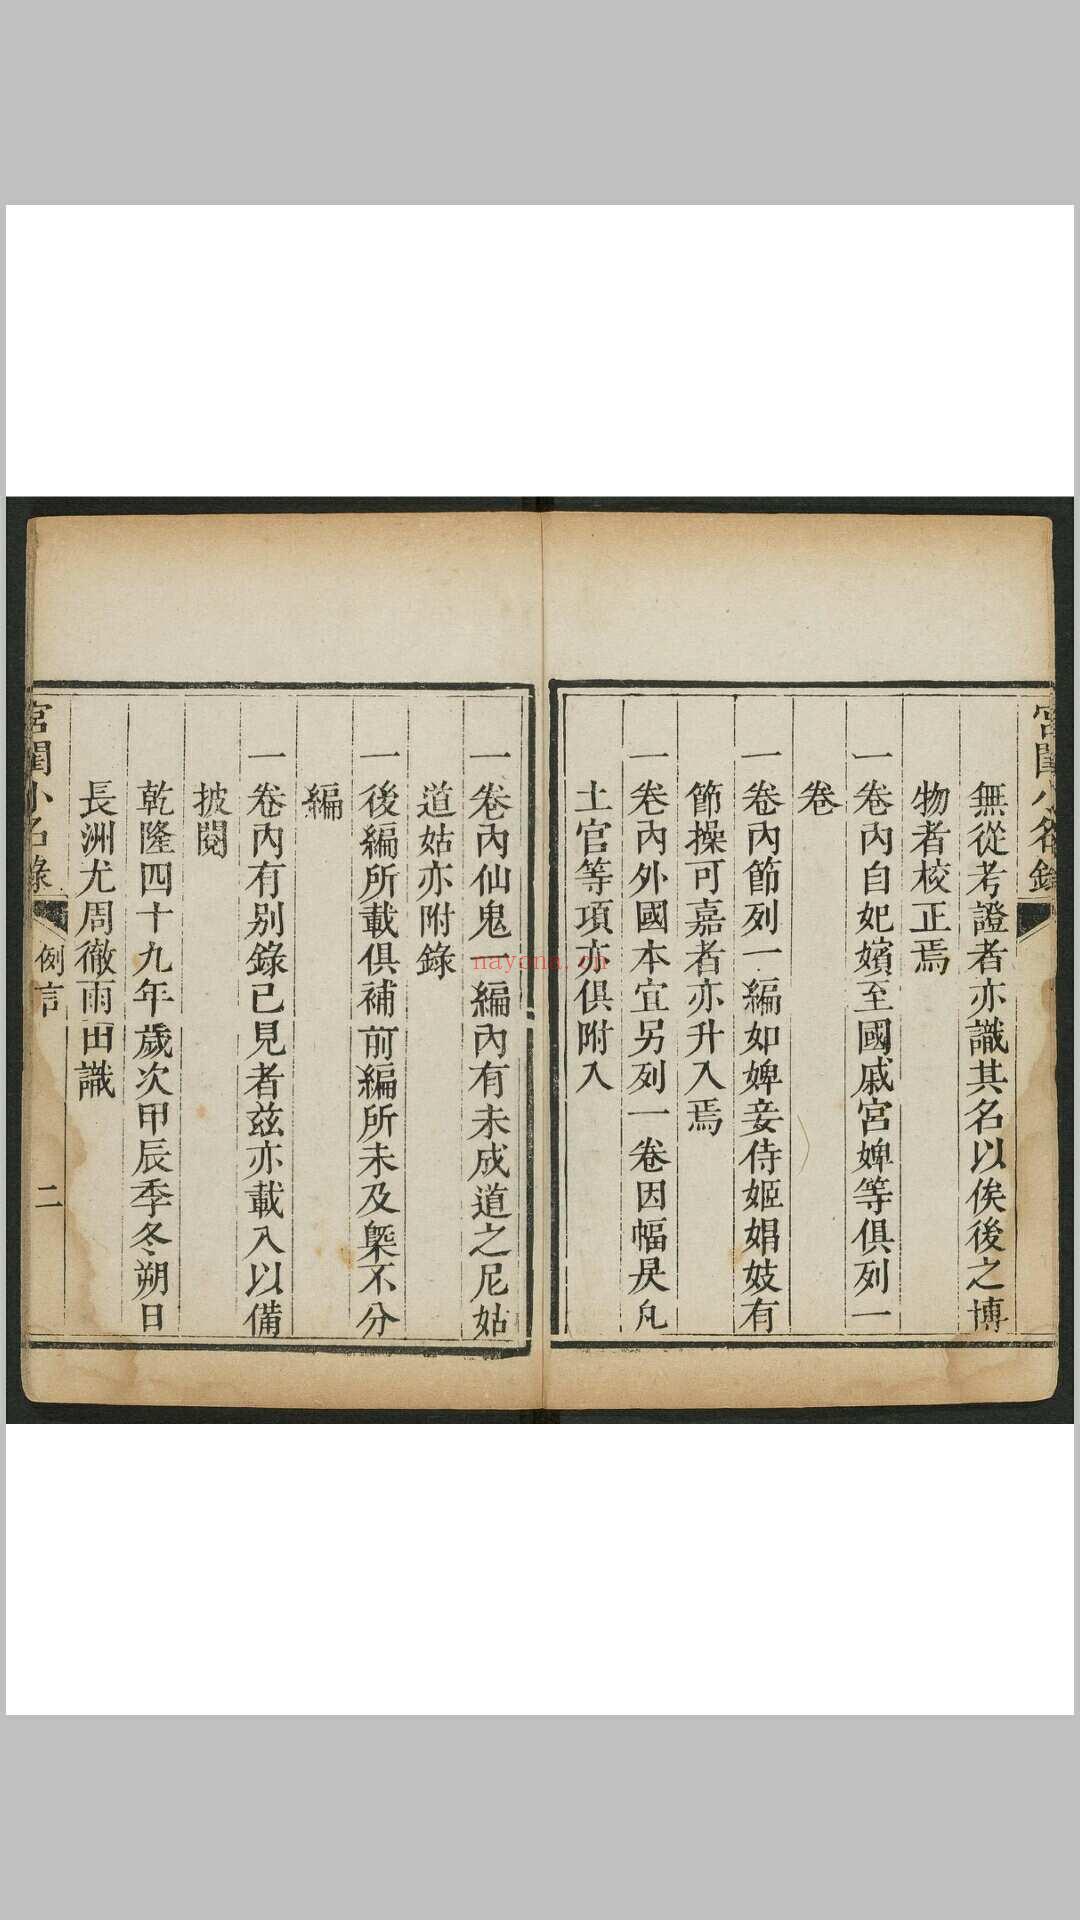 宮閨小名錄
無從考證者亦識其名以俟後之博
物者校正焉
一卷內自妃嬪至國戚宮婢等俱列一
卷
一卷內節列一編如婢妾侍姬娼妓有
節操可嘉者亦升入焉
一卷內外國本宜另列一卷因幅㫷凡
土官等項亦俱附入
一卷內仙鬼一編內有未成道之尼姑
道姑亦附錄
一後編所載俱補前編所未及槩不分
編
一卷內有別錄已見者茲亦載入以備
披閱
乾隆四十九年歲次甲辰季冬朔日
長洲尤周徹雨田識
宮閨小名錄
例言
二
nayona.cn